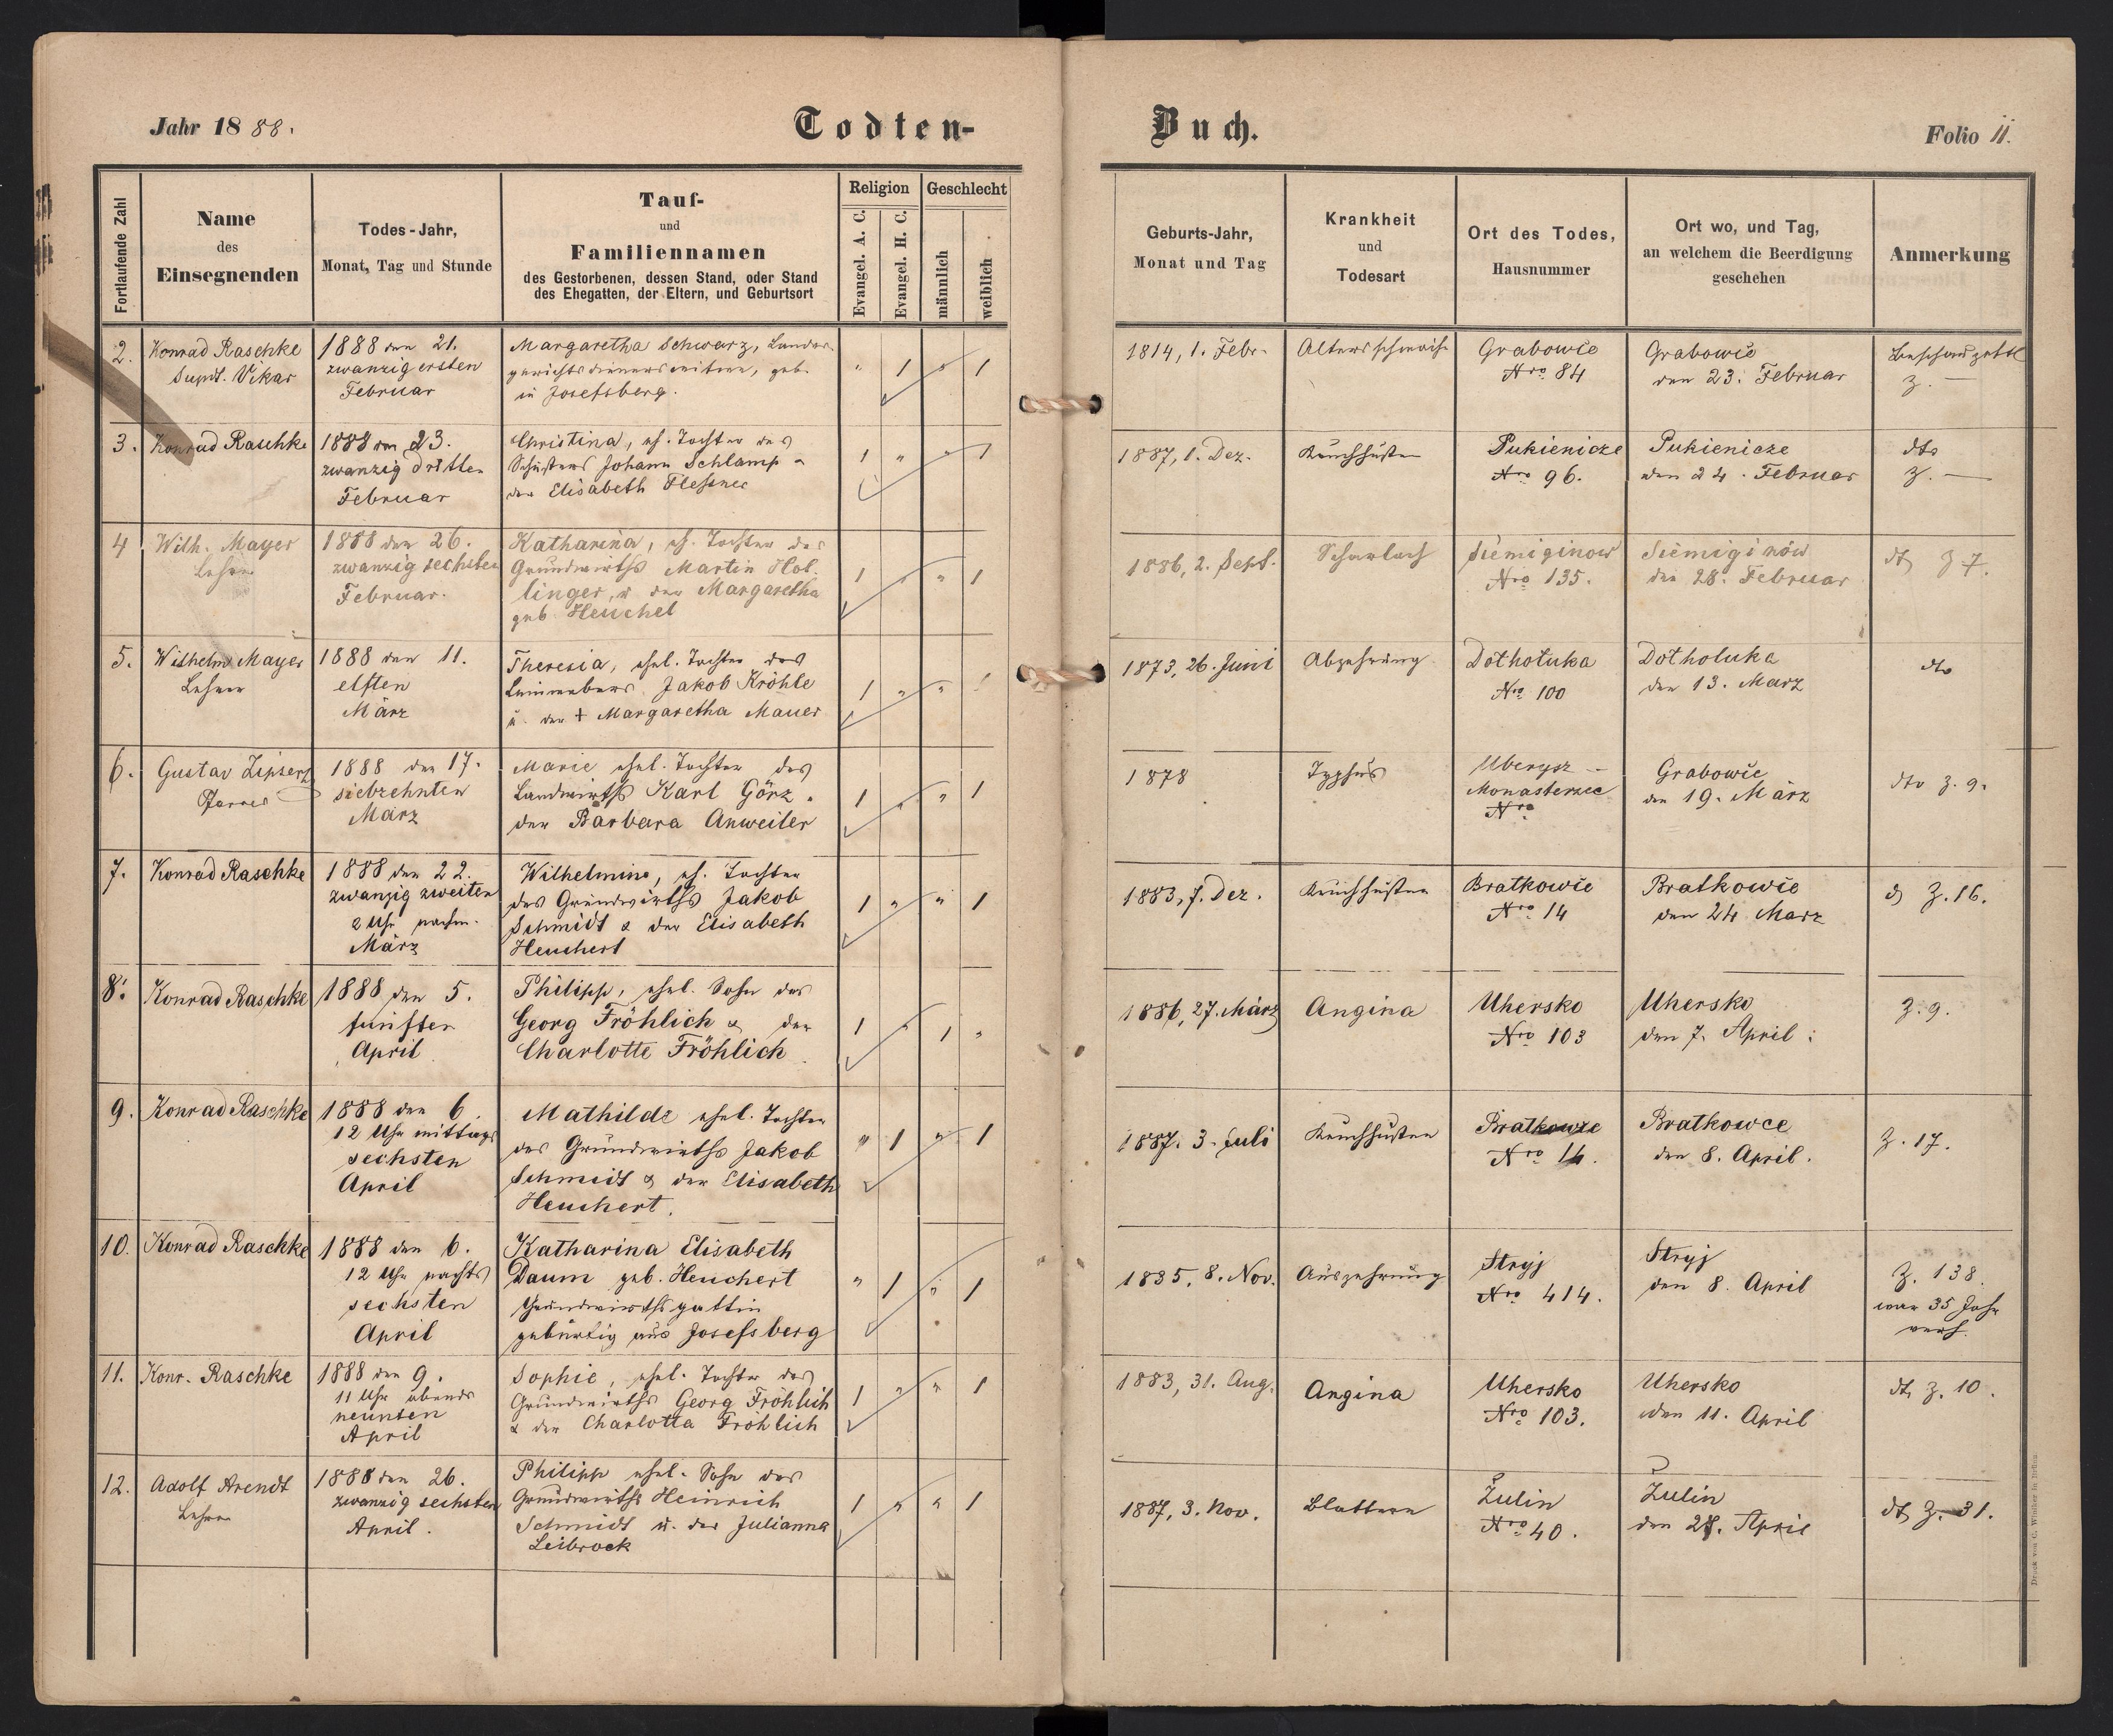 Jahr 1888.
Todten-
Buch.
Folio 11.
Fortlaufende Zahl
Name
des
Einsegnenden
Todes-Jahr,
Monat, Tag und Stunde
Tauf-
und
Familiennamen
des Gestorbenen, dessen Stand, oder Stand
des Ehegatten, der Eltern, und Geburtsort
Religion
Evangel. A. C.
Evangel. H. C.
Geschlecht
männlich
weiblich
Geburts-Jahr,
Monat und Tag
Krankheit
und
Todesart
Ort des Todes,
Hausnummer
Ort wo, und Tag,
an welchem die Beerdigung
geschehen
Anmerkung
2.
Konrad Raschke
Supdt. Vikar
1888 den 21.
zwanzig ersten
Februar
Margaretha Schwarz, Landes-
gerichtsdienerswitwe, geb.
in Josefsberg.
" 1 " 1
1814, 1. Febr.
Altersschwäche
Grabowce
Nro 84
Grabowce
den 23. Februar
Beschauzettel
Z. —
3.
Konrad Raschke
1888 den 23.
zwanzig dritten
Februar
Christina, eh. Tochter des
Schusters Johann Schlamp
der Elisabeth
1 " " 1
1887, 1. Dez.
Keuchhusten
Pukienicze
Nro 96.
Pukienicze
den 24. Februar
dto
Z. —
4
Wilh. Mayer
Lehrer
1888 den 26.
zwanzig sechsten
Februar.
Katharina, eh. Tochter des
Grundwirths Martin Hol-
linger, u. der Margaretha
geb. Heuchel
1 " " 1
1886, 2. Sept.
Scharlach
Siemiginow
Nro 135.
Siemiginów
den 28. Februar
dto Z 7.
5.
Wilhelm Mayer
Lehrer
1888 den 11.
elften
März
Theresia, ehel. Tochter des
Leinwebers Jakob Kröhle
u. der + Margaretha Mauer
1 " " 1
1873, 26. Juni
Abzehrung
Dołhołuka
Nro 100
Dołhołuka
den 13. März
dto
6.
Gustav Zipser
Pfarrer
1888 den 17.
siebzehnten
März
Marie ehel. Tochter des
Landwirths Karl Görz
der Barbara Anweiler
1 " " 1
1878
Typhus
Monasterzec
Nro
Grabowce
den 19. März
dto Z. 9.
7.
Konrad Raschke
1888 den 22.
zwanzig zweiten
2 Uhr nachm.
März
Wilhelmine, eh. Tochter
des Grundwirths Jakob
Schmidt & der Elisabeth
Heuchert
1 " " 1
1883, 7. Dez.
Keuchhusten
Bratkowce
Nro 14
Bratkowce
den 24. März
dto Z. 16.
8.
Konrad Raschke
1888 den 5.
fünften
April
Philipp, ehel. Sohn des
Georg Fröhlich & der
Charlotte Fröhlich
1 " 1 "
1886, 27. März
Angina
Uhersko
Nro 103
Uhersko
den 7. April.
Z. 9.
9.
Konrad Raschke
1888 den 6.
12 Uhr mittags
sechsten
April
Mathilde ehel. Tochter
des Grundwirths Jakob
Schmidt & der Elisabeth
Heuchert.
" 1 " 1
1887. 3. Juli
Keuchhusten
Bratkowce
Nro 14.
Bratkowce
den 8. April.
Z. 17.
10.
Konrad Raschke
1888 den 6.
12 Uhr nachts
sechsten
April
Katharina Elisabeth
Daum geb. Heuchert
Grundwirthsgattin
gebürtig aus Josefsberg
" 1 " 1
1835, 8. Nov.
Auszehrung
Stryj
Nro 414.
Stryj
den 8. April
Z. 138.
war 35 Jahr
verh.
11.
Konr. Raschke
1888 den 9.
11 Uhr abends
neunten
April
Sophie, ehel. Tochter des
Grundwirths Georg Fröhlich
& der Charlotta Fröhlich
1 " " 1
1883, 31. Aug.
Angina
Uhersko
Nro 103.
Uhersko
den 11. April
dto Z. 10.
12.
Adolf Arendt
Lehrer
1888 den 26.
zwanzig sechsten
April.
Philipp ehel. Sohn des
Grundwirths Heinrich
Schmidt u. der Julianna
Leibrock
1 " " 1
1887, 3. Nov.
Blattern
Żulin
Nro 40.
Żulin
den 28. April
dto Z. 31.